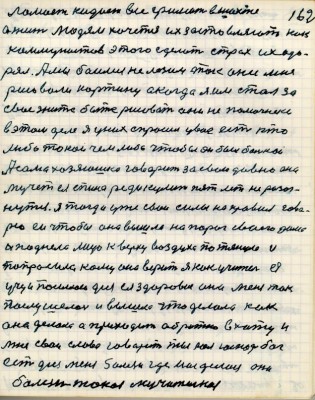 162
ломает кидает все гремит в шахте
а жит людям хочется их заставлять как
коммунистов этого сделать страх их одо-
рял. А мы были не так они меня
рисовали картину а когда я им стал за
свое знать боте рисовать они не помочники
в этом деле я у них спросил у вас есть кто
либо такой чем либо чтобы он был больной
А сама хозяюшка говорит за свои давно она
мучет ся спина редикулит пят лет не разог-
нутся. я тогда уже свои силы направил гово-
рю ей чтобы она вышла на порог своего дома
и подняла лицо к верху воздуха потянула и
попросила кому она верит я как учител её
учу посилаю для ея здоровья она меня так
послушала и вышла что делала как
она делала а приходит обратно в хату и
мне свои слова говорит ты как бог
есть для меня болезн где мне она
болезн такая мучителная